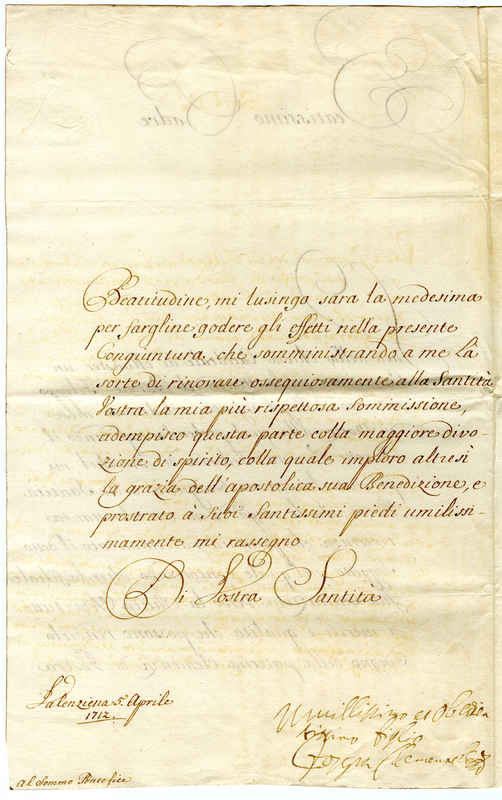 Beatitudine, mi lusingo sara la medesima
per fargline godere gli effetti nella presente
Congiuntura, che somministrando a me la
sorte di rinovare ossequiosamente alla Santità
Vostra la mia più rispettosa sommissione,
adempisco questa parte colla maggiore divo-
zione di spirito, colla quale imploro altresì
la grazia dell'apostolica sua Benedizione, e
prostrato à Suoi Santissimi piedi umilissi-
mamente mi rassegno
Di Vostra Santità
Valenziena 5. Aprile
1712.
Umillissimo et Obedien
tissimo figlio
al Sommo Pontefice